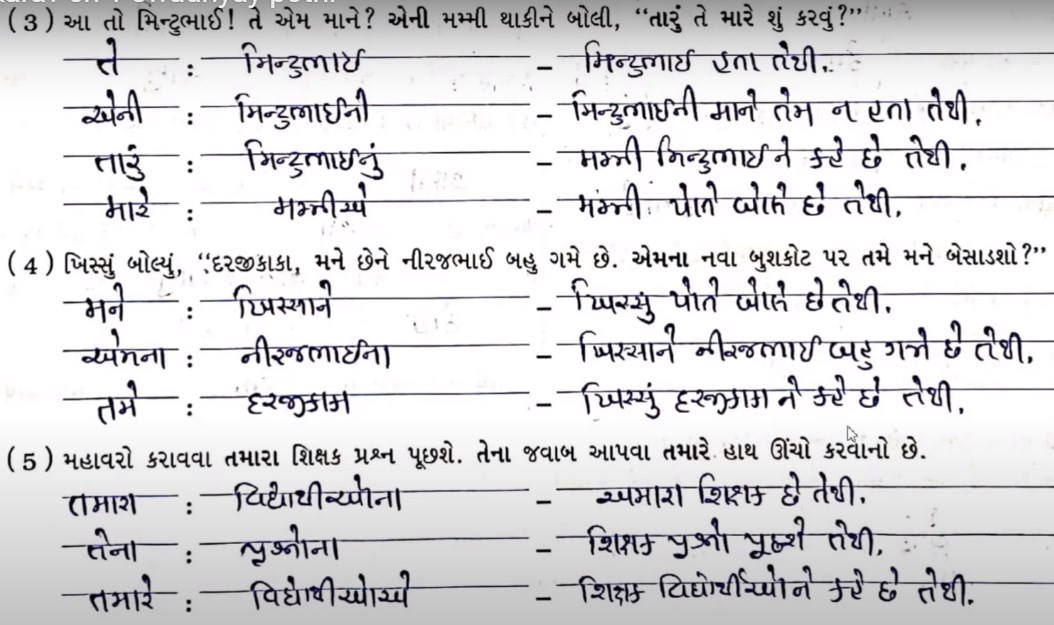 (3) આ તો મિન્ટુભાઈ! તે એમ માને? એની મમ્મી થાકીને બોલી, “તારું તે મારે શું કરવું?”
તે : મિન્ટુભાઈ – મિન્ટુભાઈ હતા તેથી.
એની : મિન્ટુભાઈની – મિન્ટુભાઈની માને તેમ ન હતા તેથી.
તારું : મિન્ટુભાઈનું – મમ્મી મિન્ટુભાઈ ને કહે છે તેથી.
મારે : મમ્મીએ – મમ્મી પોતે બોલે છે તેથી.
(4) ખિસ્સું બોલ્યું, “દરજીકાકા, મને છેને નીરજભાઈ બહુ ગમે છે. એમના નવા બુશકોટ પર તમે મને બેસાડશો?”
મને : ખિસ્સાને – ખિસ્સું પોતે બોલે છે તેથી.
એમના : નીરજભાઈના – ખિસ્સાને નીરજભાઈ બહુ ગમે છે તેથી.
તમે : દરજીકાકા – ખિસ્સું દરજીકાકા ને કહે છે તેથી.
(5) મહાવરો કરાવવા તમારા શિક્ષક પ્રશ્ન પૂછશે. તેના જવાબ આપવા તમારે હાથ ઊંચો કરવાનો છે.
તમારા : વિદ્યાર્થીઓના – અમારા શિક્ષક છે તેથી.
તેના : પ્રશ્નોના – શિક્ષક પ્રશ્નો પૂછશે તેથી.
તમારે : વિદ્યાર્થીઓએ – શિક્ષક વિદ્યાર્થીઓને કહે છે તેથી.